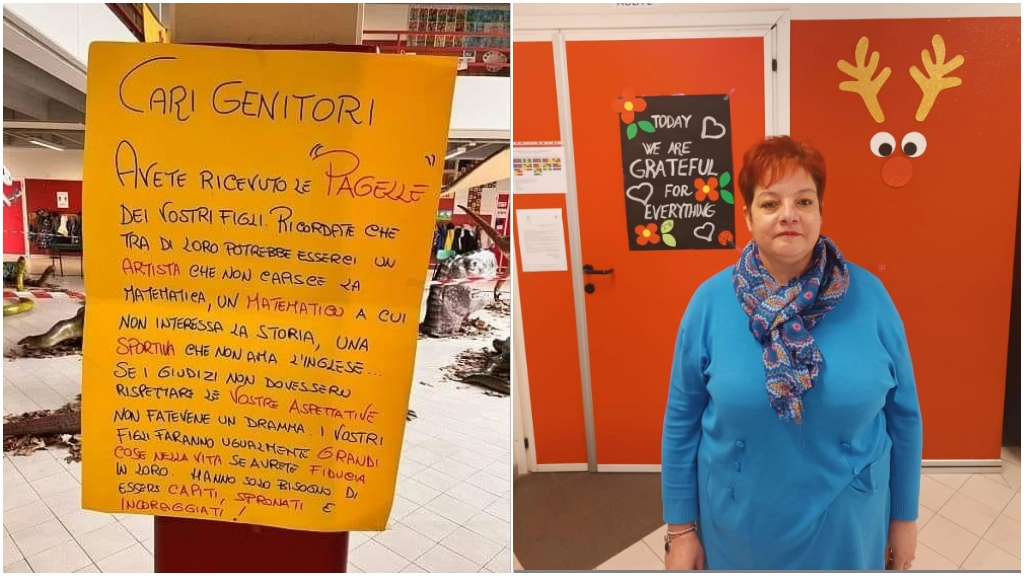 CARI GENITORI
AVETE RICEVUTO LE "PAGELLE"
DEI VOSTRI FIGLI. RICORDATE CHE
TRA DI LORO POTREBBE ESSERCI UN
ARTISTA CHE NON CAPISCE LA
MATEMATICA, UN MATEMATICO A CUI
NON INTERESSA LA STORIA, UNA
SPORTIVA CHE NON AMA L'INGLESE...
SE I GIUDIZI NON DOVESSERO
RISPETTARE LE VOSTRE ASPETTATIVE
NON FATEVENE UN DRAMMA. I VOSTRI
FIGLI FARANNO UGUALMENTE GRANDI
COSE NELLA VITA SE AVRETE FIDUCIA
IN LORO. HANNO SOLO BISOGNO DI
ESSERE CAPITI, SPRONATI E
INCORAGGIATI!
TODAY
WE ARE
GRATEFUL
FOR
EVERYTHING